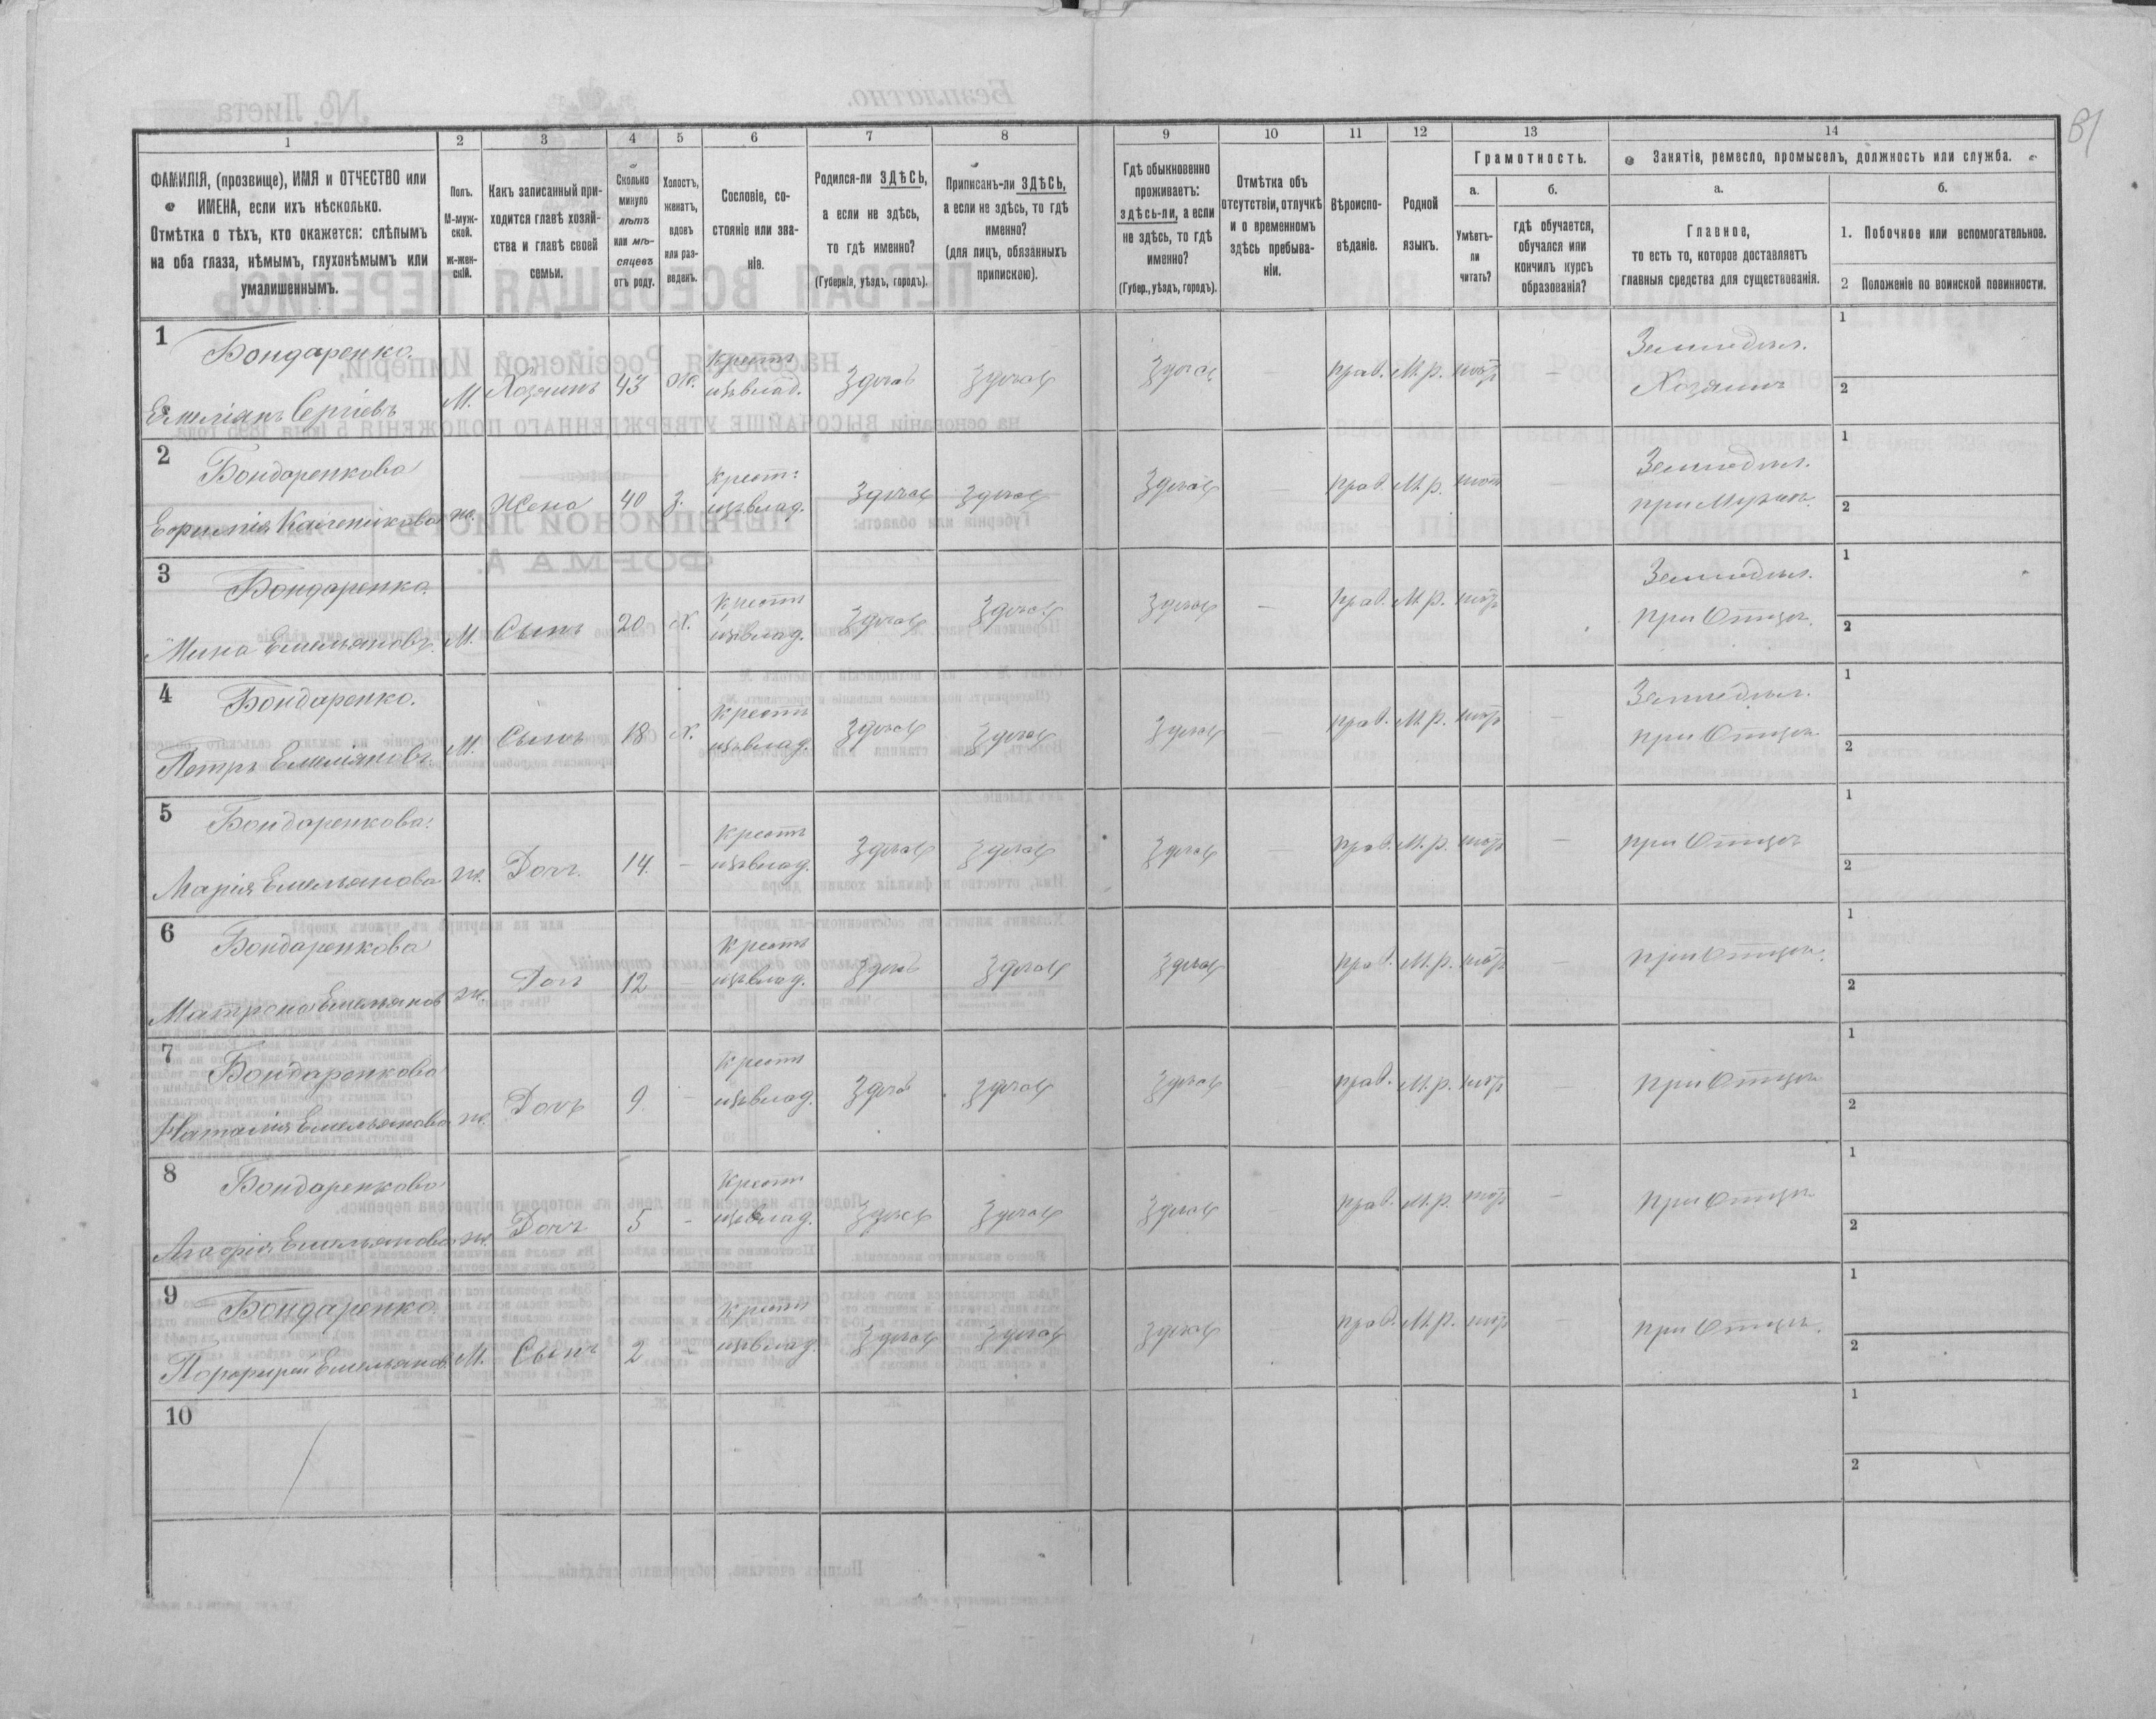 81
1 2 3 4 5 6 7 8 9 10 11 12 13 14
ФАМИЛІЯ, (прозвище), ИМЯ и ОТЧЕСТВО или
ИМЕНА, если ихъ нѣсколько.
Отмѣтка о тѣхъ, кто окажется: слѣпымъ
на оба глаза, нѣмымъ, глухонѣмымъ или
умалишеннымъ.
Полъ.
М-муж-
ской.
ж-жен-
скій.
Какъ записанный при-
ходится главѣ хозяй-
ства и главѣ своей
семьи.
Сколько
минуло
лѣтъ
или мѣ-
сяцевъ
отъ роду.
Холостъ,
женатъ,
вдовъ
или раз-
веденъ.
Сословіе, со-
стояніе или зва-
ніе.
Родился-ли ЗДѢСЬ,
а если не здѣсь,
то гдѣ именно?
(Губернія, уѣздъ, городъ).
Приписанъ-ли ЗДѢСЬ,
а если не здѣсь, то гдѣ
именно?
(для лицъ, обязанныхъ
припискою).
Гдѣ обыкновенно
проживаетъ:
здѣсь-ли, а если
не здѣсь, то гдѣ
именно?
(Губер., уѣздъ, городъ).
Отмѣтка объ
отсутствіи, отлучкѣ
и о временномъ
здѣсь пребыва-
ніи.
Вѣроиспо-
вѣданіе.
Родной
языкъ.
Грамотность.
а.
Умѣетъ-
ли
читать?
б.
гдѣ обучается,
обучался или
кончилъ курсъ
образованія?
Занятіе, ремесло, промыселъ, должность или служба.
а.
Главное,
то есть то, которое доставляетъ
главныя средства для существованія.
б.
1. Побочное или вспомогательное.
2 Положеніе по воинской повинности.
1 Бондаренко. крестъ Земледѣл. 1
Емиліянъ Сергіевъ М. Хозяинъ 43 ж. здѣсь здѣсь здѣсь — прав. М.р. — Хозяинъ 2
2 Бондаренкова крест: Земледѣл. 1
Жена 40 З. здѣсь здѣсь здѣсь — прав. М.р. — при Мужѣ 2
3 Бондаренко. крестъ Земледѣл. 1
Мина Емельяновъ М. Сынъ 20 Х. здѣсь здѣсь здѣсь — прав. М.р. при Отцѣ. 2
4 Бондаренко. крестъ Земледѣл. 1
Петръ Емеліяновъ М. Сынъ 18 Х. здѣсь здѣсь здѣсь — прав. М.р. — при Отцѣ. 2
5 Бондаренкова. крестъ 1
Марія Емельянова ж. Доч. 14. — здѣсь здѣсь здѣсь — прав. М.р. — при Отцѣ 2
6 Бондаренкова крестъ 1
Матрена Емельянов ж. Доч 12 — здѣсь здѣсь здѣсь — прав. М.р. — при Отцѣ. 2
7 Бондаренкова крестъ 1
Наталія Емельянова ж. Дочъ 9 — здѣсь здѣсь здѣсь — прав. М.р. — при Отцѣ 2
8 Бондаренкова крестъ 1
Агафія Емельянова ж. Доч 5 — здѣсь здѣсь здѣсь — прав. М.р. — при Отцѣ 2
9 Бондаренко. крестъ 1
Порфирій Емельянов М. Сынъ 2 — здѣсь здѣсь здѣсь — прав. М.р. — при Отцѣ. 2
10 1
2